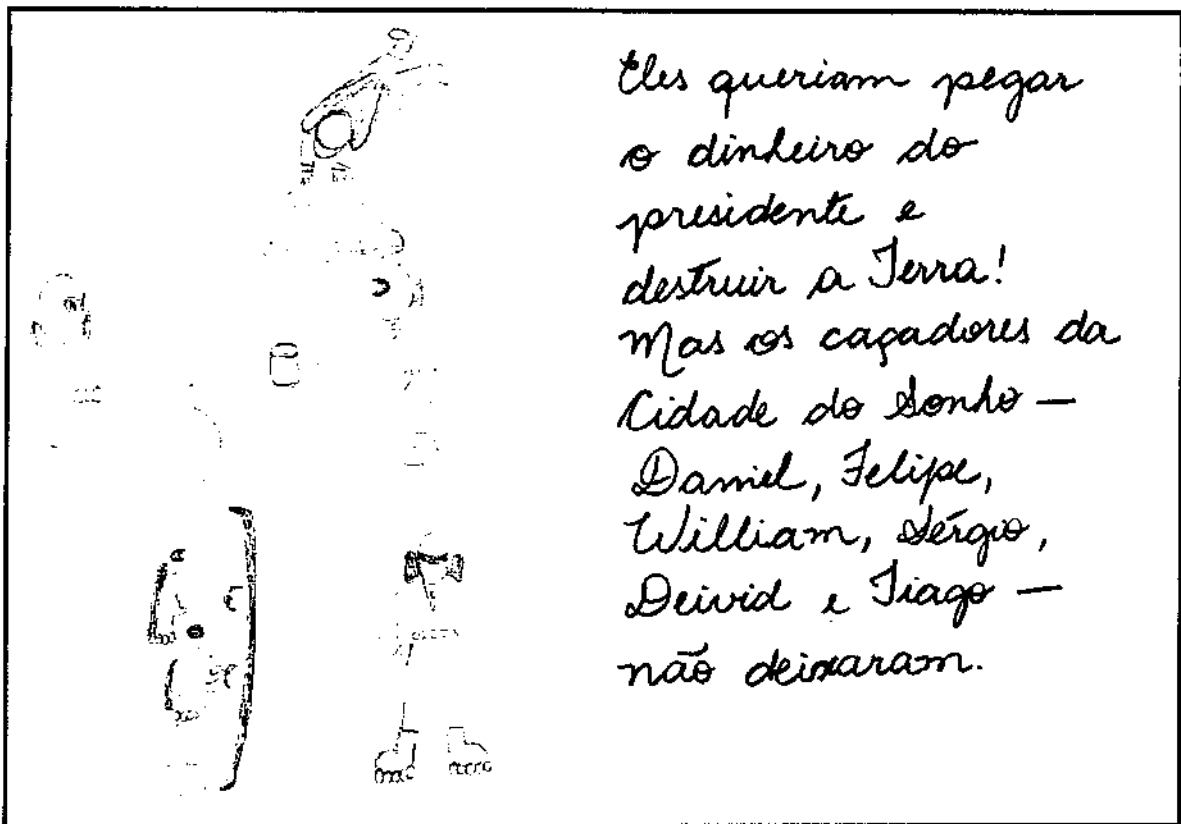 Eles queriam pegar
o dinheiro do
presidente e
destruir a Terra!
Mas os caçadores da
Cidade do Sonho —
Daniel, Felipe,
William, Sérgio,
Deivid e Tiago —
não deixaram.